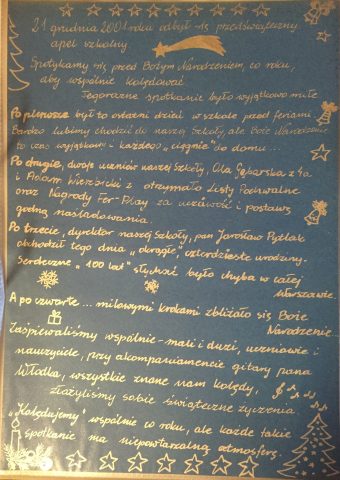 21 grudnia 2001 roku odbył się przedświąteczny
apel szkolny
Spotykamy się przed Bożym Narodzeniem, co roku,
aby wspólnie kolędować
Tegoroczne spotkanie było wyjątkowo miłe
Po pierwsze był to ostatni dzień w szkole przed feriami
Bardzo lubimy chodzić do naszej Szkoły, ale Boże Narodzenie
to czas wyjątkowy i każdego "ciągnie" do domu...
Po drugie, dwoje uczniów naszej Szkoły, Ola
i Adam Wierzbicki z otrzymało Listy Pochwalne
oraz Nagrody Fer-Play za uczciwość i postawę
godną naśladowania.
Po trzecie, dyrektor naszej Szkoły, pan Jarosław Pytlak
obchodził tego dnia „okrągłe", czterdzieste urodziny.
Serdeczne „100 lat" słychać było chyba w całej
Warszawie.
A po czwarte... milowymi krokami zbliżało się Boże
Narodzenie...
Zaśpiewaliśmy wspólnie - mali i duzi, uczniowie i
nauczyciele, przy akompaniamencie gitary pana
Włodka, wszystkie znane nam kolędy,
złożyliśmy sobie świąteczne życzenia.
„Kolędujemy" wspólnie co roku, ale każde takie
spotkanie ma niepowtarzalną atmosferę.